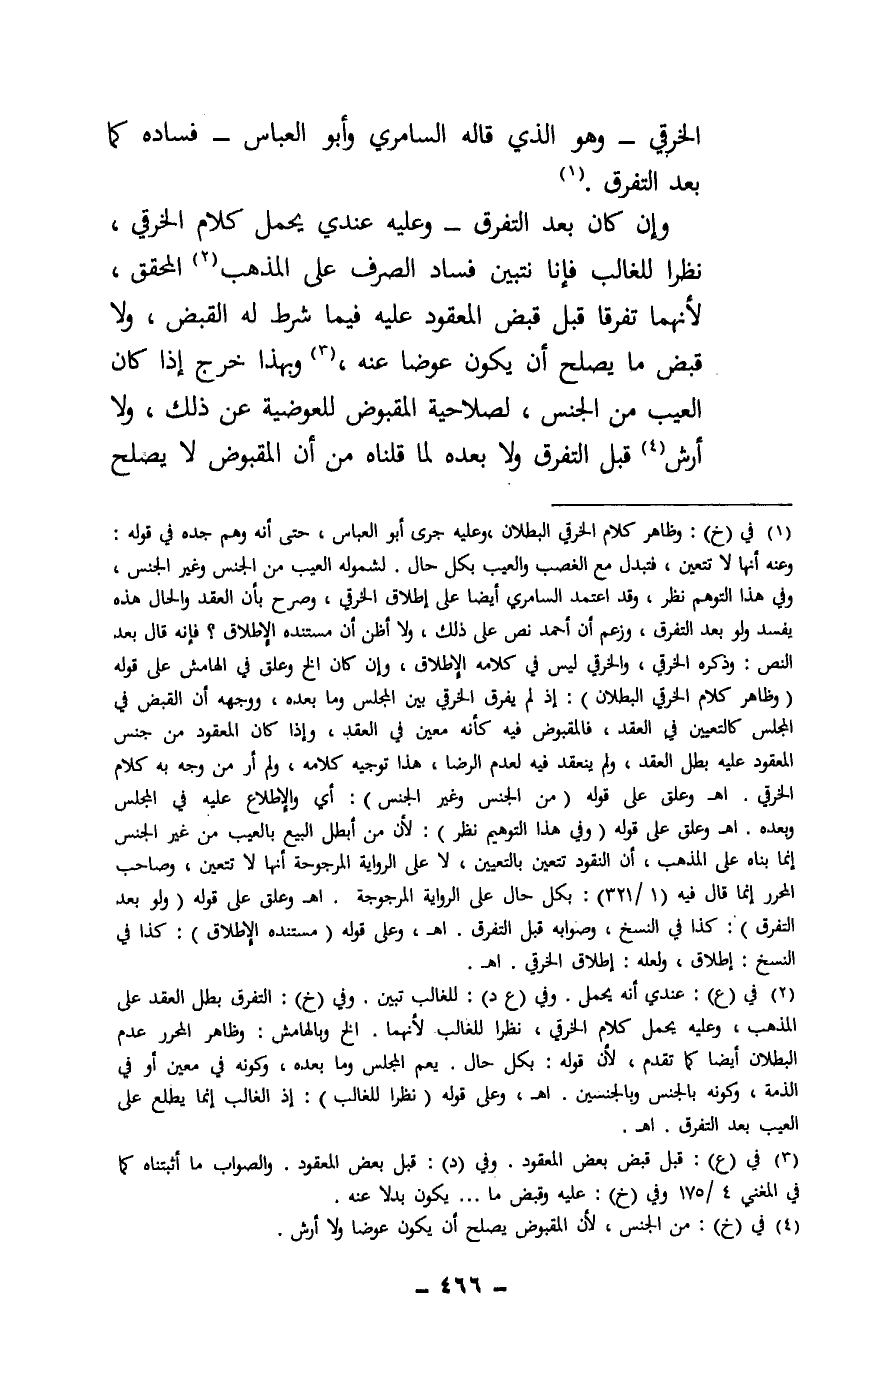 الخرقي – وهو الذي قاله السامري وأبو العباس – فساده كما
بعد التفرق .(١)
وإن كان بعد التفرق – وعليه عندي يحمل كلام الخرقي ،
نظرا للغالب فإنا نتبين فساد الصرف على المذهب(٢) المحقق ،
لأنهما تفرقا قبل قبض المعقود عليه فيما شرط له القبض ، ولا
قبض ما يصلح أن يكون عوضا عنه ،(٣) وبهذا خرج إذا كان
العيب من الجنس ، لصلاحية المقبوض للعوضية عن ذلك ، ولا
أرش(٤) قبل التفرق ولا بعده لما قلناه من أن المقبوض لا يصلح
(١) في (خ) : وظاهر كلام الخرقي البطلان ،وعليه جرى أبو العباس ، حتى أنه وهم جده في قوله :
وعنه أنها لا تتعين ، فتبدل مع الغصب والعيب بكل حال . لشموله العيب من الجنس وغير الجنس ،
وفي هذا التوهم نظر ، وقد اعتمد السامري أيضا على إطلاق الخرقي ، وصرح بأن العقد والحال هذه
يفسد ولو بعد التفرق ، وزعم أن أحمد نص على ذلك ، ولا أظن أن مستنده الإطلاق ؟ فإنه قال بعد
النص : وذكره الخرقي ، والخرقي ليس في كلامه الإطلاق ، وإن كان الخ وعلق في الهامش على قوله
( وظاهر كلام الخرقي البطلان ) : إذ لم يفرق الخرقي بين المجلس وما بعده ، ووجهه أن القبض في
المجلس كالتعيين في العقد ، فالمقبوض فيه كأنه معين في العقد ، وإذا كان المعقود من جنس
المعقود عليه بطل العقد ، ولم ينعقد فيه لعدم الرضا ، هذا توجيه كلامه ، ولم أر من وجه به كلام
الخرقي . اهـ وعلق على قوله ( من الجنس وغير الجنس ) : أي والإطلاع عليه في المجلس
وبعده . اهـ وعلق على قوله ( وفي هذا التوهيم نظر ) : لأن من أبطل البيع بالعيب من غير الجنس
إنما بناه على المذهب ، أن النقود تتعين بالتعيين ، لا على الرواية المرجوحة أنها لا تتعين ، وصاحب
المحرر إنما قال فيه (١ /٣٢١) : بكل حال على الرواية المرجوحة . اهـ وعلق على قوله ( ولو بعد
التفرق ) : كذا في النسخ ، وصوابه قبل التفرق . اهـ ، وعلى قوله ( مستنده الإطلاق ) : كذا في
النسخ : إطلاق ، ولعله : إطلاق الخرقي . اهـ .
(٢) في (ع) : عندي أنه يحمل . وفي (ع د) : للغالب تبين . وفي (خ) : التفرق بطل العقد على
المذهب ، وعليه يحمل كلام الخرقي ، نظرا للغالب لأنهما . الخ وبالهامش : وظاهر المحرر عدم
البطلان أيضا كما تقدم ، لأن قوله : بكل حال . يعم المجلس وما بعده ، وكونه في معين أو في
الذمة ، وكونه بالجنس وبالجنسين . اهـ ، وعلى قوله ( نظرا للغالب ) : إذ الغالب إنما يطلع على
العيب بعد التفرق . اهـ .
(٣) في (ع) : قبل قبض بعض المعقود . وفي (د) : قبل بعض المعقود . والصواب ما أثبتناه كما
في المغني ٤ /١٧٥ وفي (خ) : عليه وقبض ما ... يكون بدلا عنه .
(٤) في (خ) : من الجنس ، لأن المقبوض يصلح أن يكون عوضا ولا أرش .
– ٤٦٦ –